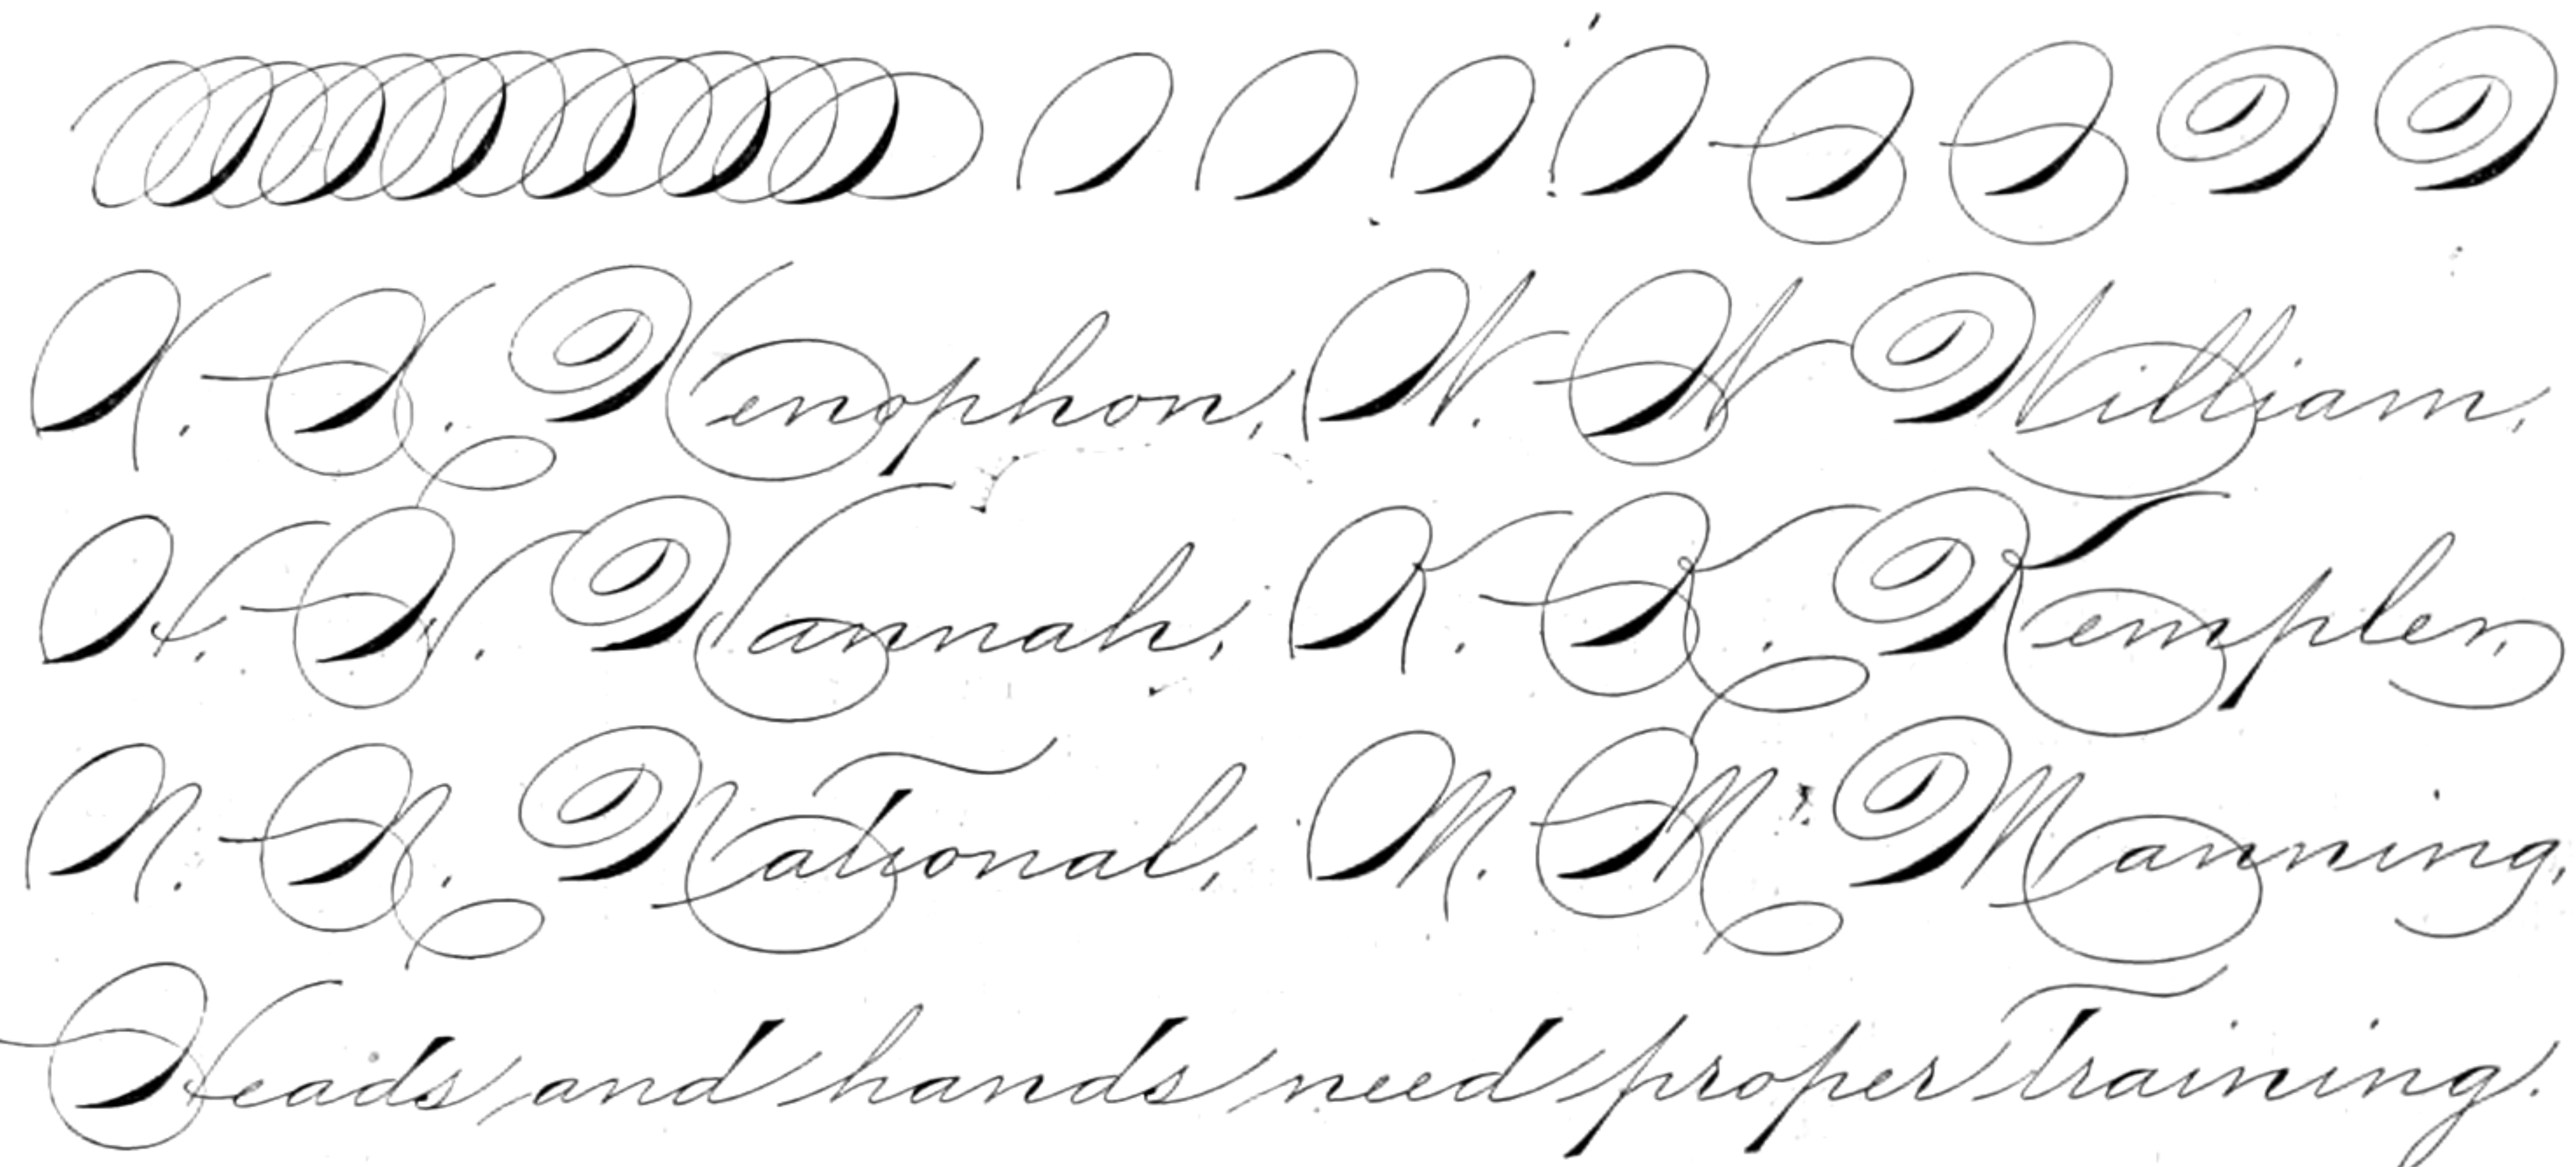 X. X. Xenophon, W. W William,
H. H. Hannah, K. K. Kempler,
N. N. National, M. M. Manning,
Heads and hands need proper training.